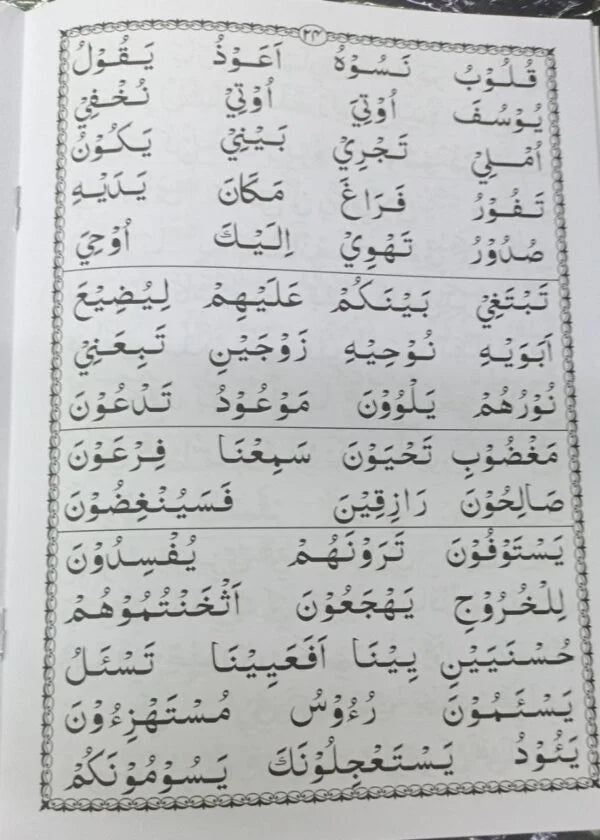 ۲۴
قُلُوْبُ نَسُوْهُ اَعُوْذُ يَقُوْلُ
يُوْسُفَ اُوْتِيَ اُوْتِيْ نُخْفِيْ
اُمْلِيْ تَجْرِيْ بَيْنِيْ يَكُوْنُ
تَفُوْرُ فَرَاغَ مَكَانَ يَدَيْهِ
صُدُوْرُ تَهْوِيْ اِلَيْكَ اُوْحِيَ
تَبْتَغِيْ بَيْنَكُمْ عَلَيْهِمْ لِيُضِيْعَ
اَبَوَيْهِ نُوْحِيْهِ زَوْجَيْنِ تَبِعَنِيْ
نُوْرُهُمْ يَلْوُوْنَ مَوْعُوْدُ تَدْعُوْنَ
مَغْضُوْبِ تَحْيَوْنَ سَمِعْنَا فِرْعَوْنَ
صَالِحُوْنَ رَازِقِيْنَ فَسَيُنْغِضُوْنَ
يَسْتَوْفُوْنَ تَرَوْنَهُمْ يُفْسِدُوْنَ
لِلْخُرُوْجِ يَهْجَعُوْنَ اَثْخَنْتُمُوْهُمْ
حُسْنَيَيْنِ بِيْنَا اَفَعَيِيْنَا تَسْئَلُ
يَسْئَمُوْنَ رُءُوْسُ مُسْتَهْزِءُوْنَ
يَئُوْدُ يَسْتَعْجِلُوْنَكَ يَسُوْمُوْنَكُمْ